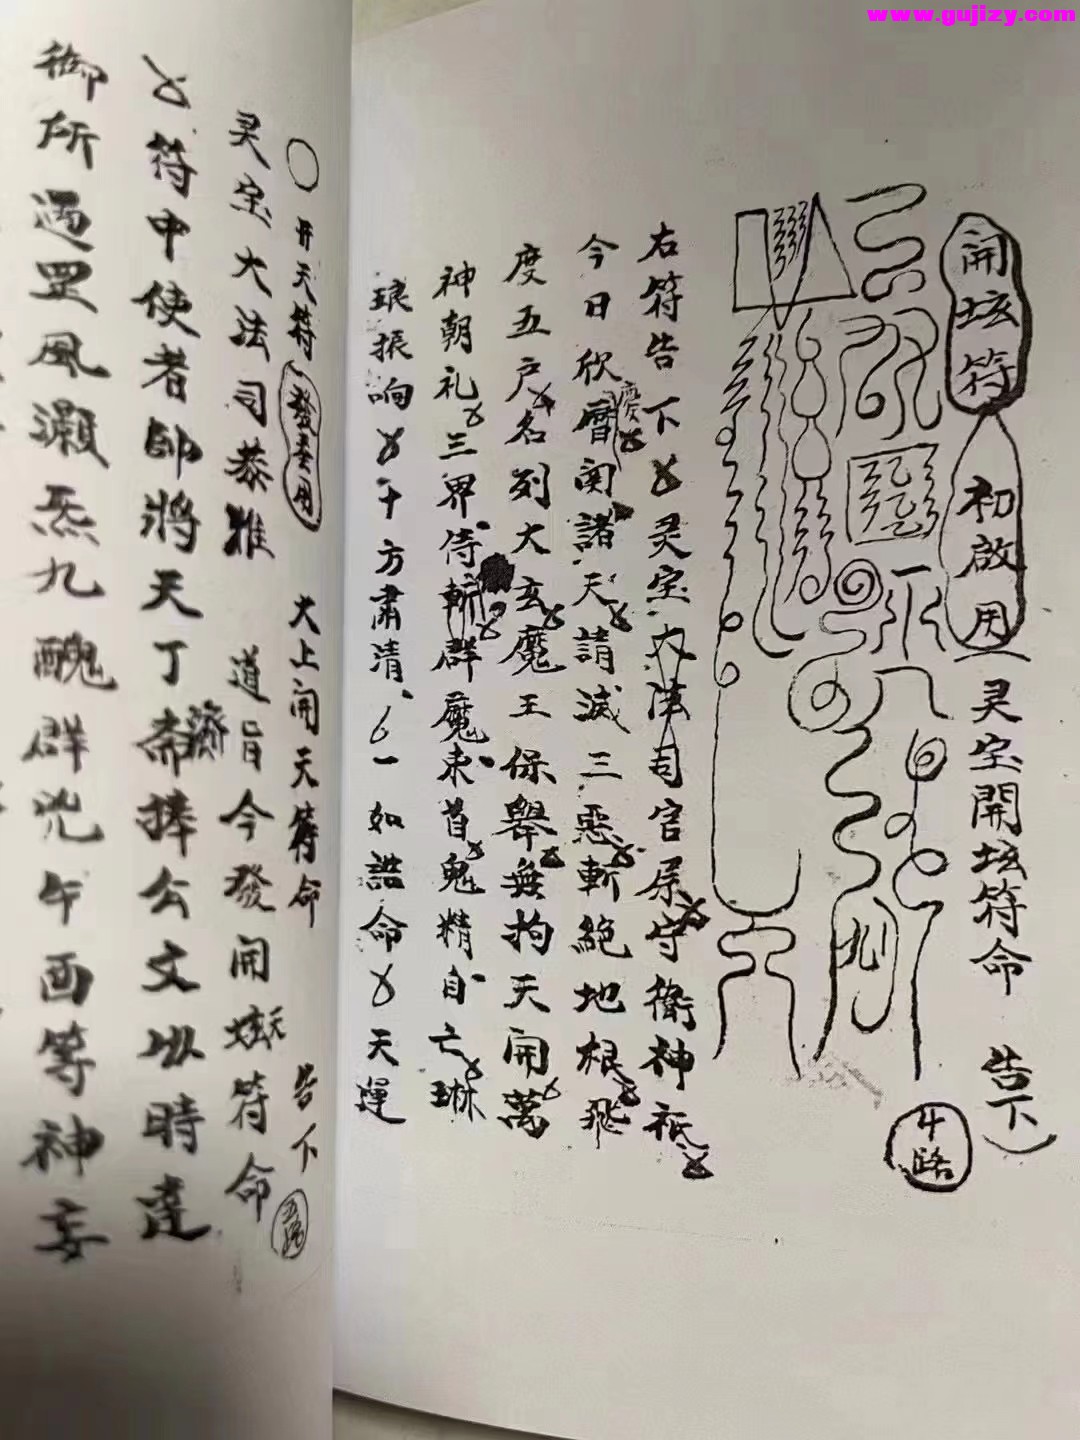 www.gujizy.com
開坛符
初啟用
灵宝開坛符命 告下
斗路
右符告下灵宝大法司官属守衛神祗
今日欣
慶
開諸天請滅三惡斬絕地根飛
度五户名列大玄魔王保舉無拘天開萬
神朝礼三界侍軒群魔束首鬼精自亡琳
琅振响十方肃清一如誥命天運
○开天符
發奏用
大上開天符命 告下
灵宝大法司恭准 道旨今發開坛
天
符命
符中使者帥將天丁斋
濟
捧公文以時達
御所遇罡風灏炁九醜群兇午酉等神妄